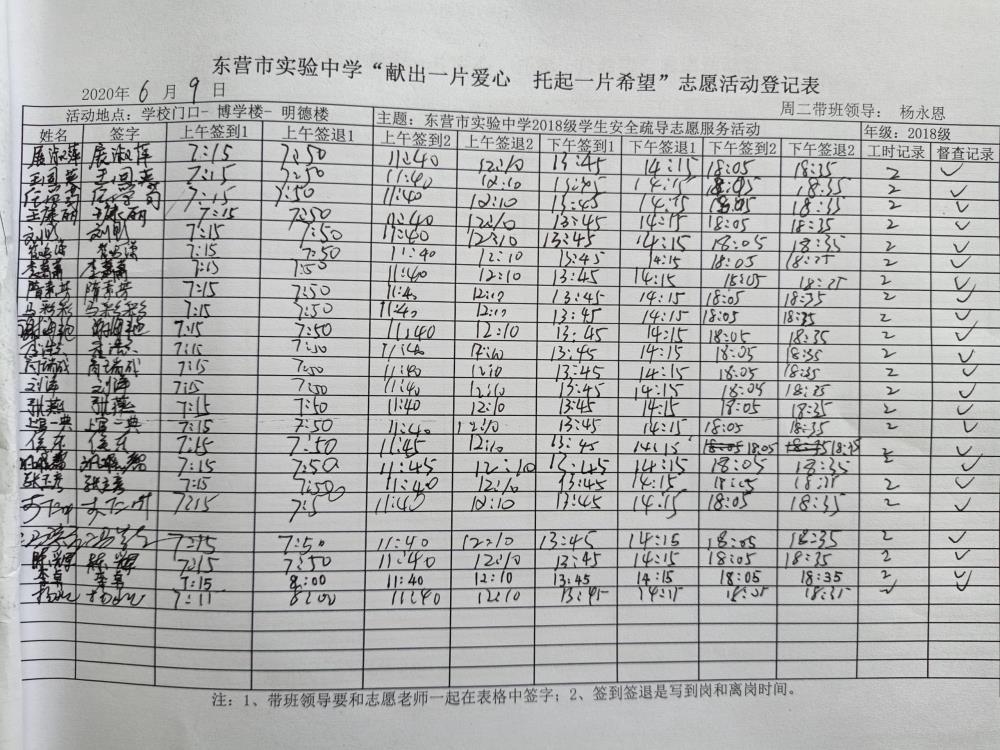 东营市实验中学“献出一片爱心　托起一片希望”志愿活动登记表
2020年 6 月 9 日
周二带班领导： 杨永恩
活动地点：学校门口- 博学楼- 明德楼 主题：东营市实验中学2018级学生安全疏导志愿服务活动 年级：2018级
姓名 签字 上午签到1 上午签退1 上午签到2 上午签退2 下午签到1 下午签退1 下午签到2 下午签退2 工时记录 督查记录
展淑萍 展淑萍 7:15 7:50 11:40 12:10 13:45 14:15 18:05 18:35 2 ✓
7:15 7:50 11:40 12:10 13:45 14:15 18:05 18:35 2 ✓
7:15 7:50 11:40 12:10 13:45 14:15 18:05 18:35 2 ✓
王康丽 王康丽 7:15 7:50 11:40 12:10 13:45 14:15 18:05 18:35 2 ✓
刘 刘 7:15 7:50 11:40 12:10 13:45 14:15 18:05 18:35 2 ✓
7:15 7:50 11:40 12:10 13:45 14:15 18:05 18:35 2 ✓
李 李 7:15 7:50 11:40 12:10 13:45 14:15 18:05 18:35 2 ✓
隋 隋 7:15 7:50 11:40 12:10 13:45 14:15 18:05 18:35 2 ✓
马彩彩 马彩彩 7:15 7:50 11:40 12:10 13:45 14:15 18:05 18:35 2 ✓
7:15 7:50 11:40 12:10 13:45 14:15 18:05 18:35 2 ✓
7:15 7:50 11:40 12:10 13:45 14:15 18:05 18:35 2 ✓
尚瑞成 尚瑞成 7:15 7:50 11:40 12:10 13:45 14:15 18:05 18:35 2 ✓
刘海 刘海 7:15 7:50 11:40 12:10 13:45 14:15 18:05 18:35 2 ✓
张燕 张燕 7:15 7:50 11:40 12:10 13:45 14:15 18:05 18:35 2 ✓
上官一典 上官一典 7:15 7:50 11:40 12:10 13:45 14:15 18:05 18:35 2 ✓
侯东 侯东 7:15 7:50 11:45 12:10 13:45 14:15 18:05 18:05 18:35 18:35 2 ✓
7:15 7:50 11:45 12:10 13:45 14:15 18:05 18:35 2 ✓
张玉彦 张玉彦 7:15 7:50 11:40 12:10 13:45 14:15 18:05 18:35 2 ✓
7:15 7:5 11:40 12:10 13:45 14:15 18:05 18:35 2 ✓
7:15 7:50 11:40 12:10 13:45 14:15 18:05 18:35 2 ✓
陈辉 陈辉 7:15 7:50 11:40 12:10 13:45 14:15 18:05 18:35 2 ✓
李卓 李卓 7:15 8:00 11:40 12:10 13:45 14:15 18:05 18:35 2 ✓
7:11 8:00 11:40 12:10 13:45 14:15 18:05 18:35 2 ✓
注：1、带班领导要和志愿老师一起在表格中签字；2、签到签退是写到岗和离岗时间。